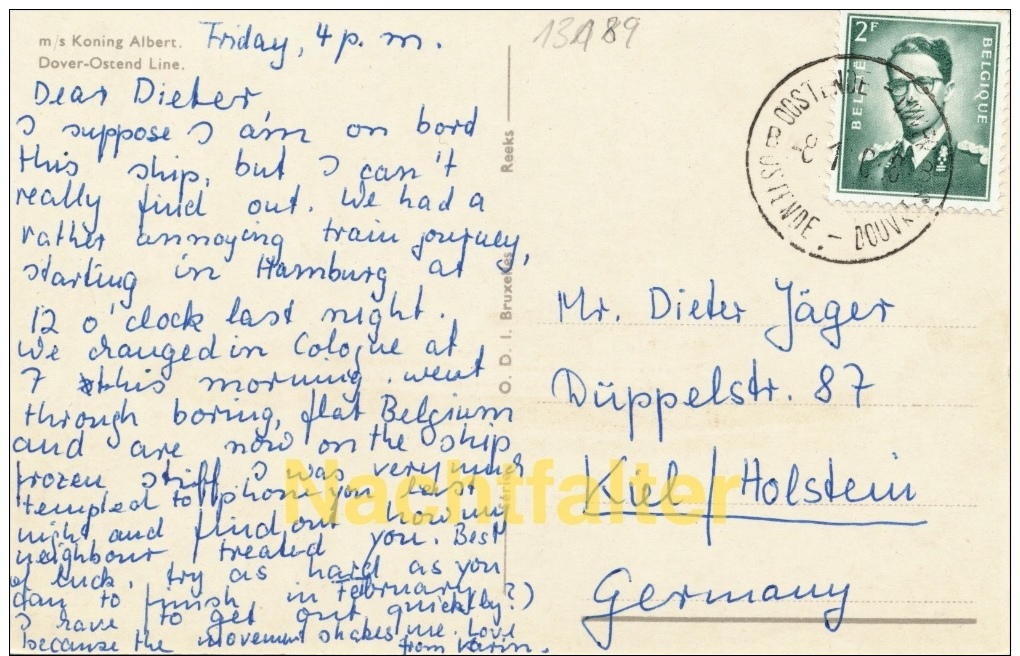 m/s Koning Albert.
Dover-Ostend Line.
Friday, 4 p. m.
13A89
Dear Dieter,
I suppose I am on bord
this ship, but I can't
really find out. We had a
rather annoying train journey,
starting in Hamburg at
12 o'clock last night.
We changed in Cologne at
7 this morning. went
through boring, flat Belgium
and are now on the ship
frozen stiff. I was very much
tempted to phone you last
night and find out how my
neighbour treated you. Best
of luck, try as hard as you
can to finish in February
I have to get out quickly?)
because the movement shakes me. Love
from Karin.
O. D. I. Bruxelles
Reeks
2F
BELGIË
BELGIQUE
OOSTENDE
B
OSTENDE - DOUVRES
Mr. Dieter Jäger
Düppelstr. 87
Kiel/Holstein
Germany
Nachtfalter